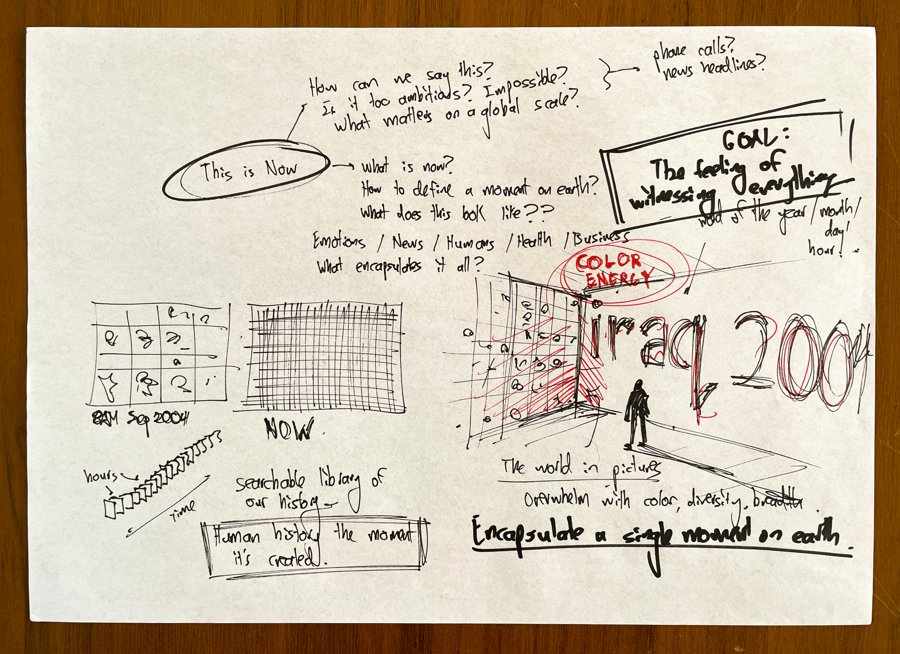 How can we say this?
Is it too ambitious? Impossible?
What matters on a global scale?
phone calls?
news headlines?
This is Now
what is now?
How to define a moment on earth?
What does this look like??
Emotions / News / Humans / Health / Business
What encapsulates it all?
GOAL:
The feeling of
witnessing everything
word of the year / month /
day!
hour!
COLOR
ENERGY
8AM Sep 2004
NOW.
Iraq 2004
hours
TIME
searchable library of
our history
Human history the moment
it's created.
The world in pictures
Overwhelm with color, diversity, breadth.
Encapsulate a single moment on earth.